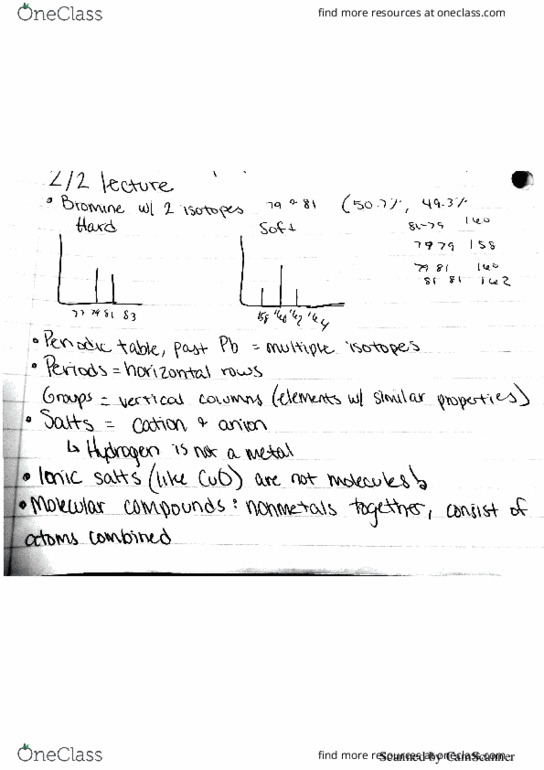 OneClass
find more resources at oneclass.com
2/2 lecture
• Bromine w/ 2 isotopes 79 & 81 (50.7%, 49.3%
Hard Soft
81-79 160
79 79 158
79 81 160
81 81 162
77 79 81 83
158 160 162 164
• Periodic table, past Pb = multiple isotopes
• Periods = horizontal rows
Groups = vertical columns (elements w/ similar properties)
• Salts = cation & anion
↳ Hydrogen is not a metal
• Ionic salts (like CuO) are not molecules
• Molecular compounds: nonmetals together, consist of
atoms combined
OneClass
find more resources at oneclass.com
Scanned by CamScanner